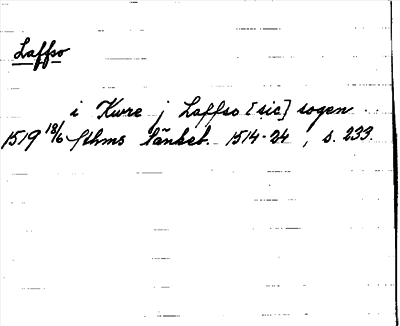 Laffso
i Kwre j Laffso [sic] sogen
1519 18/6 Sthms tänkeb. 1514-24, s. 233.